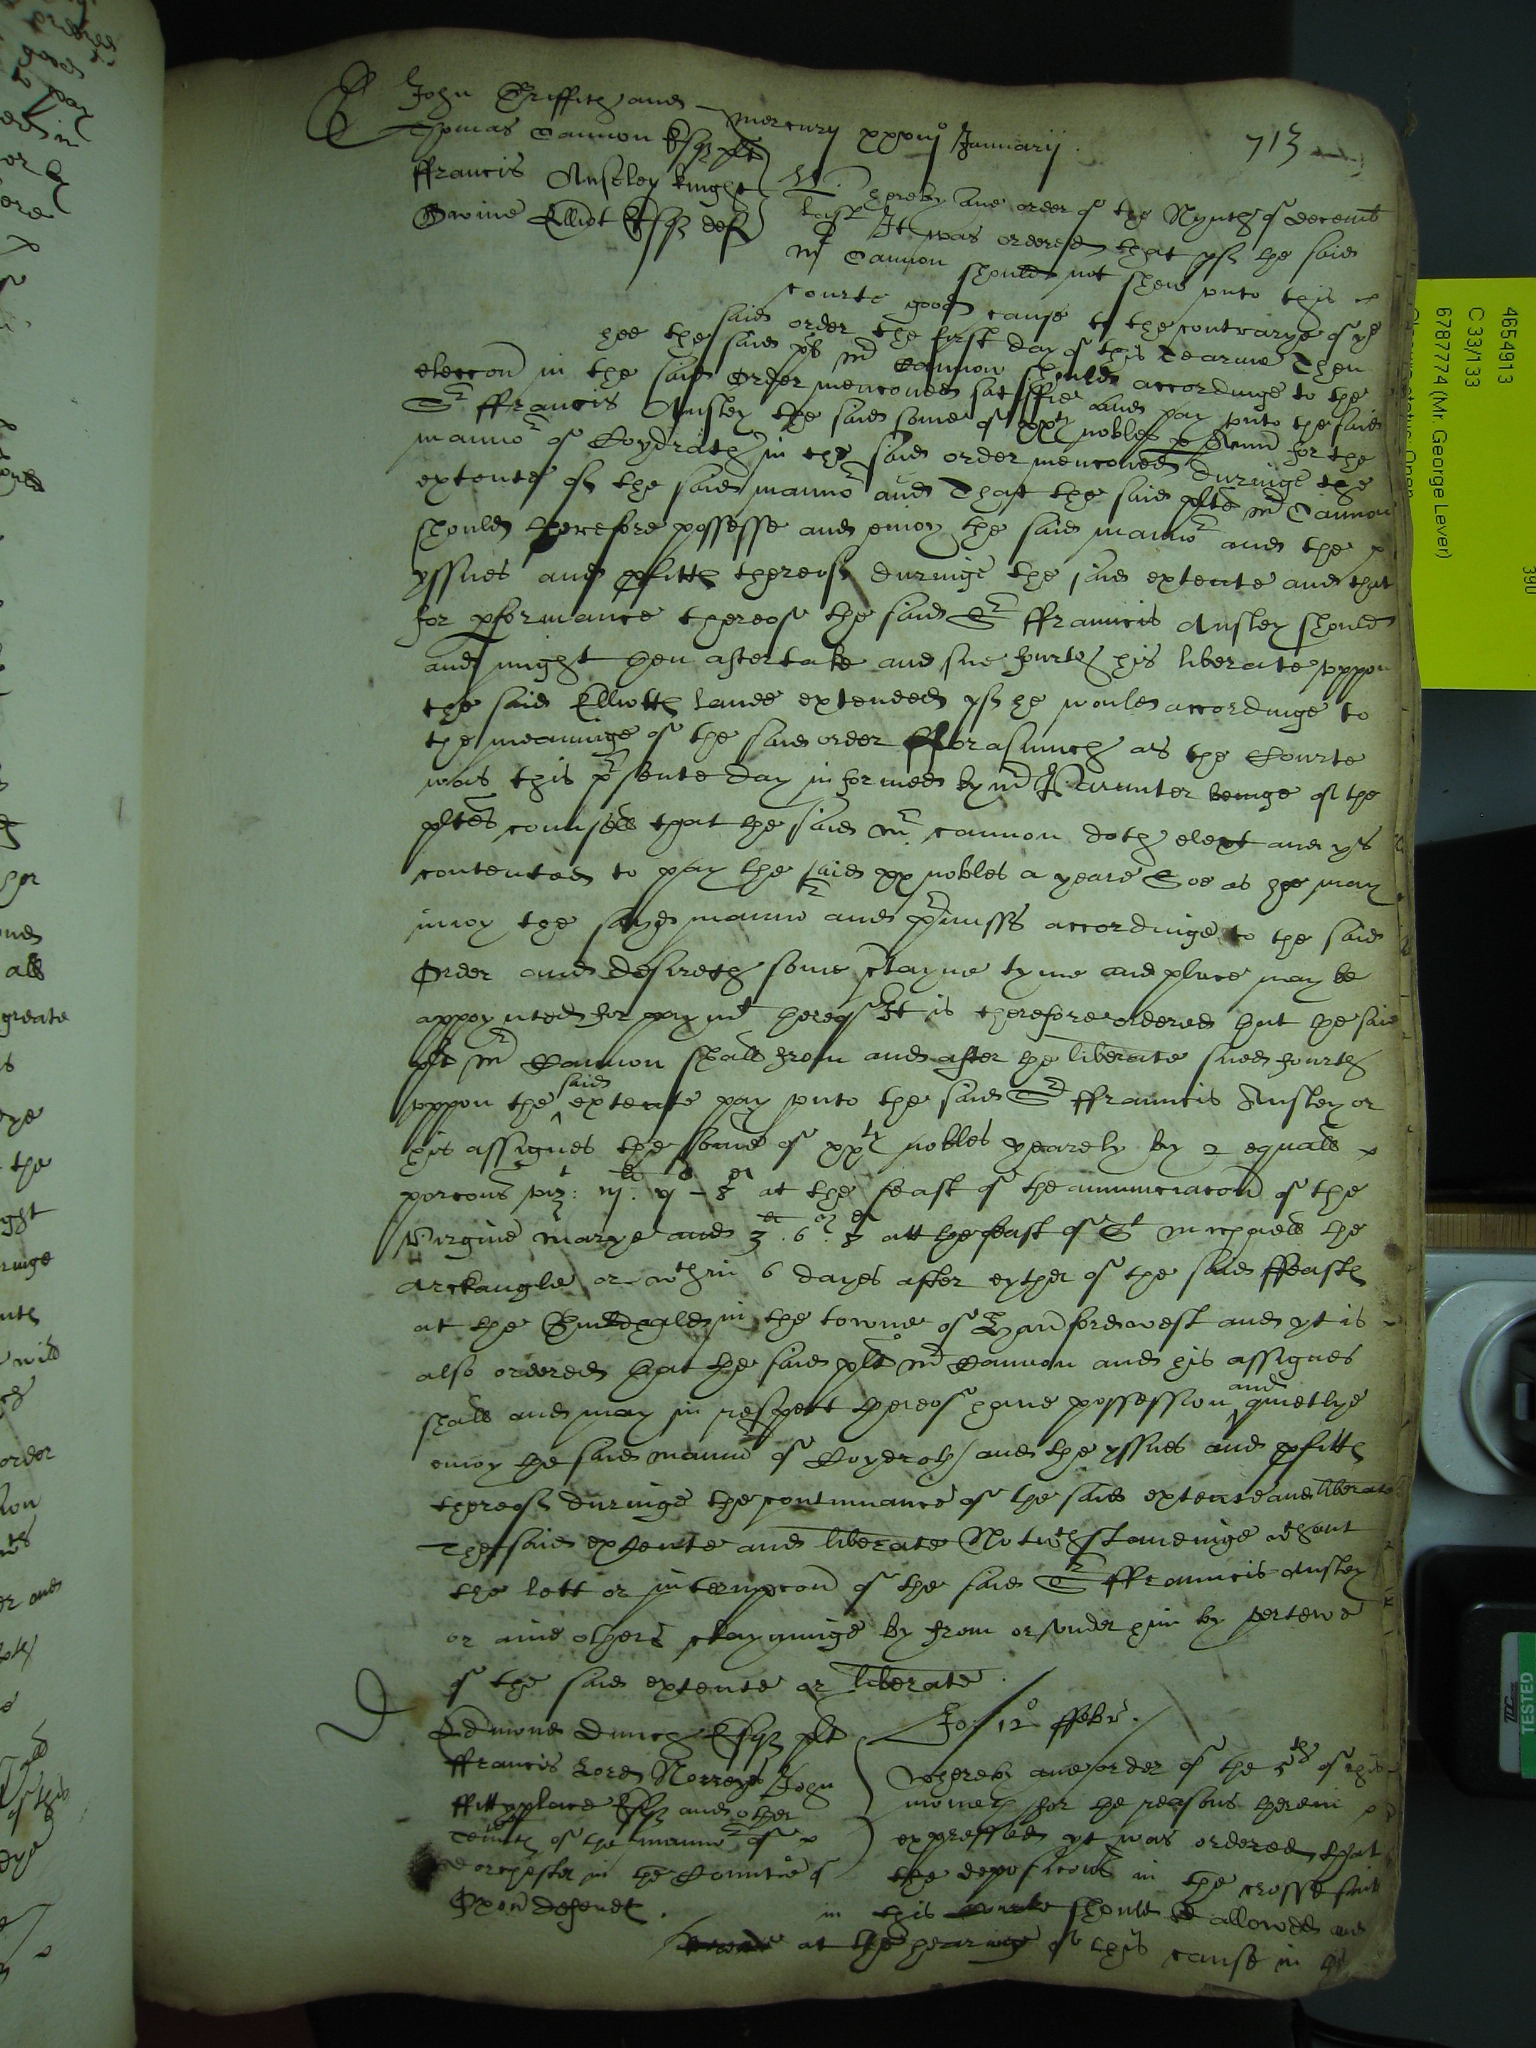 713
C
John Griffith and
Thomas Cannon Esqr plts
ffrancis Ansley knight
Gwine Elliot Esqr defts
Mercurij xxxiij Januarij
Whereby one order of the Nynth of decembr
last It was ordered that yf the said
Mr Cannon should not shew unto this
Courte good cause to the contrarye of the
said order the first day of this Tearme Then
hee the said plt Mr Cannon should accordinge to the
eleccon in the said Order menconed satisfie and pay unto the said
Sr ffrancis Ansley the said some of xxty nobles p Annu for the
manno of Coydrath in the said order menconed duringe the
extente of the said manno and That the said plte Mr Cannon
should therefore possesse and enioy the said manno and the
yssues and pfitts thereof duringe the said extente and that
for pformance thereof the said Sr ffrancis Ansley should
and might then after take and sue fourth his liberate uppon
the said Elliotts lande extended yf he would accordinge to
the meaninge of the said order fforasmuch as the Courte
was this psente day informed by mr beinge of the
pltes counsell that the said Mr Cannon doth elect and ys
contented to pay the said xx nobles a yeare Soe as he may
inioy the sayd manno and pmisss accordinge to the said
Order and desireth some tyme and place may be
appoynted for paymt thereof It is therefore ordered that the said
plt Mr Cannon shall from and after the liberate sued fourth
uppon the said extente pay unto the said Sr ffrancis Ansley or
his assignes the some of xxty nobles yearely by 2 equall
porcons viz: iij vj 8 at the feast of the annunciacon of the
Virgine Marye and 3 6 8 att the feast of St Michaell the
Arckangle or wthin 6 dayes after eyther of the said ffeasts
at the in the towne of Harfordwest and yt is
also ordered that the said plt Mr Cannon and his assignes
shall and may in respect thereof have possession and quietlye
enioy the said manno of Coydroth and the yssues and pfitts
thereof duringe the continuance of the said extente and liberate
The said extente and liberate Notwthstandinge wthout
the lett or interupcon of the said Sr ffrancis Ansley
or anie others clayminge by from or under him by vertewe
of the said extente or liberate.
D
Edmond Dunch Esqr plt
ffrancis Lord Norreys John
ffittyplace Esqr and other
tenntes of the manno of
dorchester in the Countie of
Oxon defendts.
Jo: 12o ffebr.
Whereby one order of the 5th of this
moneth for the reasons therein
expressed yt was ordered that
the deposicons in the crosse suit
in this should be allowed and
at the hearinge of this cause in
4654913
C 33/133
6787774 (Mr. George Lever)
TESTED